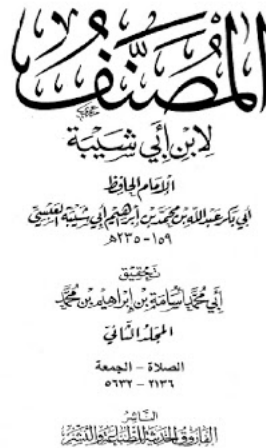 المصنف
لابن أبي شيبة
الإمام الحافظ
أبي بكر عبد الله بن محمد بن إبراهيم أبي شيبة العبسي
١٥٩-٢٣٥هـ
تحقيق
أبي محمد أسامة بن إبراهيم بن محمد
المجلد الثاني
الصلاة - الجمعة
٢١٣٦ - ٥٦٣٢
الناشر
الفاروق الحديثة للطباعة والنشر